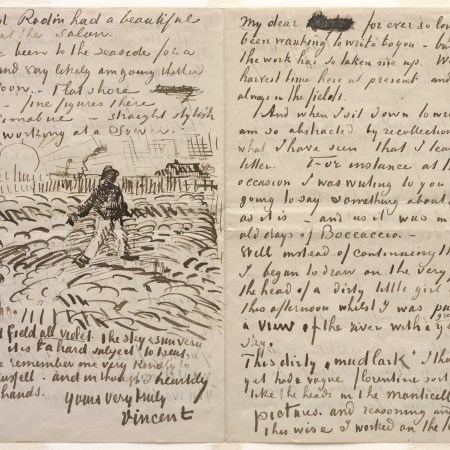 Rodin had a beautiful
at the salon.
been to the seaside for a
and very likely am going thither
soon. - Flat shore
- fine figures there
Cimabue - straight stylish
working at a Sower.
field all violet the sky & sun very
it is a hard subject to treat.
remember me very kindly to
Russell - and in thought heartily
hands.
Yours very truly
Vincent
My dear for ever so lon
been wanting to write to you - but
the work has so taken me up. We
harvest time here at present and
always in the fields.
And when I sit down to write
am so abstracted by recollection
what I have seen that I leave
letter. instance at the
occasion I was writing to you
going to say something about
as it is and as it was in
old days of Boccaccio. -
Well instead of continuing th
I began to draw on the very
the head of a dirty little girl
this afternoon whilst I was
a view of the river with a
sky.
This dirty 'mudlark' I tho
yet had a vague florentine sort
like the heads in the monticelli
pictures. and reasoning and
this wise I worked on the